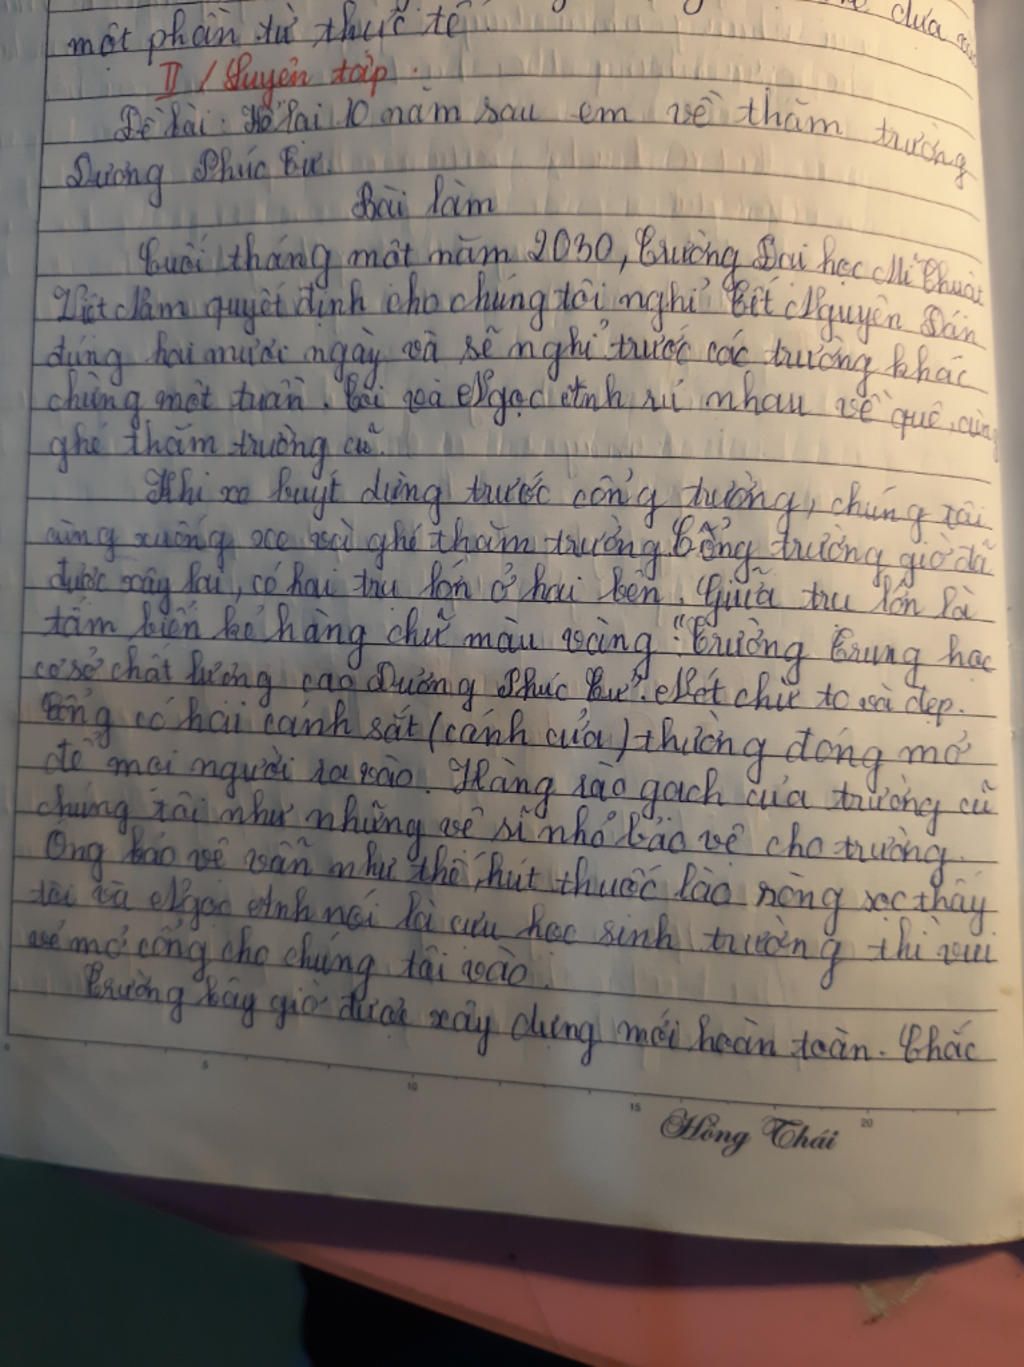 dựa vào
một phần từ thực tế
II / Luyện tập.
Đề bài: Kể lại 10 năm sau em về thăm trường
Dương Phúc Tư.
Bài làm
Cuối tháng một năm 2030, Trường Đại học Mĩ Thuật
Việt Nam quyết định cho chúng tôi nghỉ Tết Nguyên Đán
đúng hai mươi ngày và sẽ nghỉ trước các trường khác
chừng một tuần. Tôi và Ngọc Anh rủ nhau về quê, cùng
ghé thăm trường cũ.
Khi xe buýt dừng trước cổng trường, chúng tôi
cùng xuống xe và ghé thăm trường. Cổng trường giờ đã
được xây lại, có hai trụ lớn ở hai bên. Giữa trụ lớn là
tấm biển kẻ hàng chữ màu vàng: "Trường Trung học
cơ sở chất lượng cao Dương Phúc Tư". Nét chữ to và đẹp.
Cổng có hai cánh sắt (cánh cửa) thường đóng mở
để mọi người ra vào. Hàng rào gạch của trường cũ
chúng tôi như những vệ sĩ nhỏ bảo vệ cho trường.
Ông bảo vệ vẫn như thế, hút thuốc lào sòng sọc thấy
tôi và Ngọc Anh nói là cựu học sinh trường thì vui
vẻ mở cổng cho chúng tôi vào.
Trường bây giờ được xây dựng mới hoàn toàn. Chắc
0 5 10 15 20
Hồng Thái